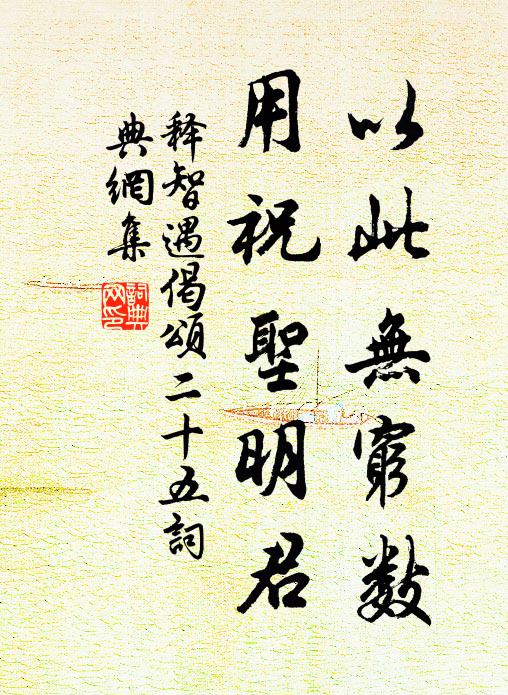 以此無窮數
用祝聖明君
释智遇偈頌二十五詞
典網集
詞典
网印